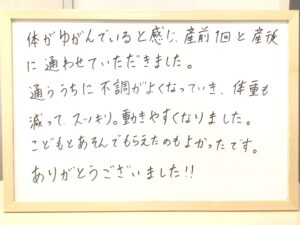 体がゆがんでいると感じ、産前1回と産後
に通わせていただきました。
通ううちに不調がよくなっていき、体重も
減って、スッキリ。動きやすくなりました。
こどもとあそんでもらえたのもよかったです。
ありがとうございました!!